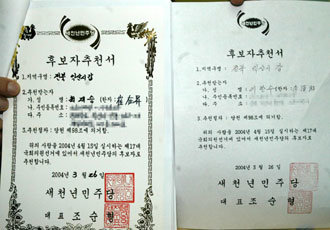 새천년민주당
후보자추천서
1. 지역구명 : 전북 익산시갑
2. 추천받는자
가. 성 명 : 최재승 (한자 : 崔在昇)
나. 주민등록번호 :
다. 주 소 :
3. 추천절차 : 당헌 제98조에 의거함.
위의 사람을 2004년 4월 15일 실시하는 제17대
국회의원선거에 있어서 새천년민주당의 후보자로
추천합니다.
2004년 3월 26일
새 천 년 민 주 당
대 표 조 순 형
새천년민주당
후보자추천서
1. 지역구명 : 전북 익산시 갑
2. 추천받는자
가. 성 명 :
나. 주민등록번호 :
다. 주 소 :
3. 추천절차 : 당헌 제98조에 의거함.
위의 사람을 2004년 4월 15일 실시하는 제17대
국회의원선거에 있어서 새천년민주당의 후보자로
추천합니다.
2004년 3월 26일
새 천 년 민 주 당
대 표 조 순 형